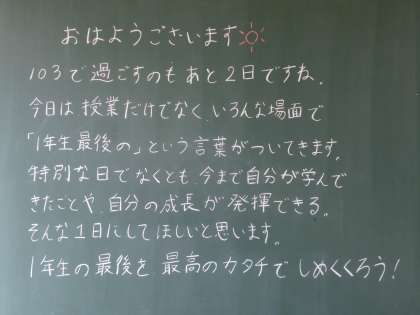 おはようございます
103で過ごすのもあと2日ですね。
今日は授業だけでなく、いろんな場面で
「1年生最後の」という言葉がついてきます。
特別な日でなくとも、今まで自分が学んで
きたことや、自分の成長が発揮できる。
そんな1日にしてほしいと思います。
1年生の最後を最高のカタチでしめくくろう!